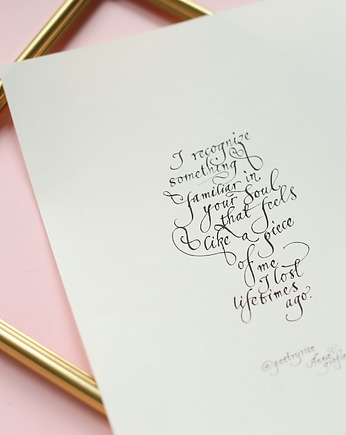 I recognize
something
familiar in
your soul
that feels
like a piece
of me
I lost
lifetimes
ago.
@poetryrise
Anna